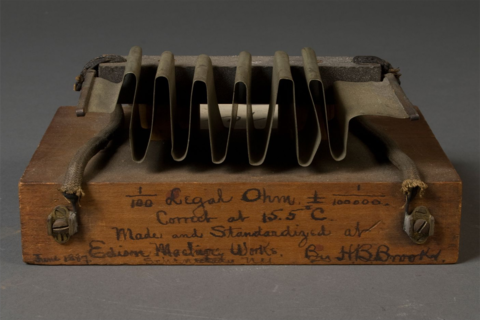 1/100 Legal Ohm. ± 1/100000.
Correct at 15.5°C.
Made and Standardized at
Edison Machine Works. By H.B. Brooks.
June 1887